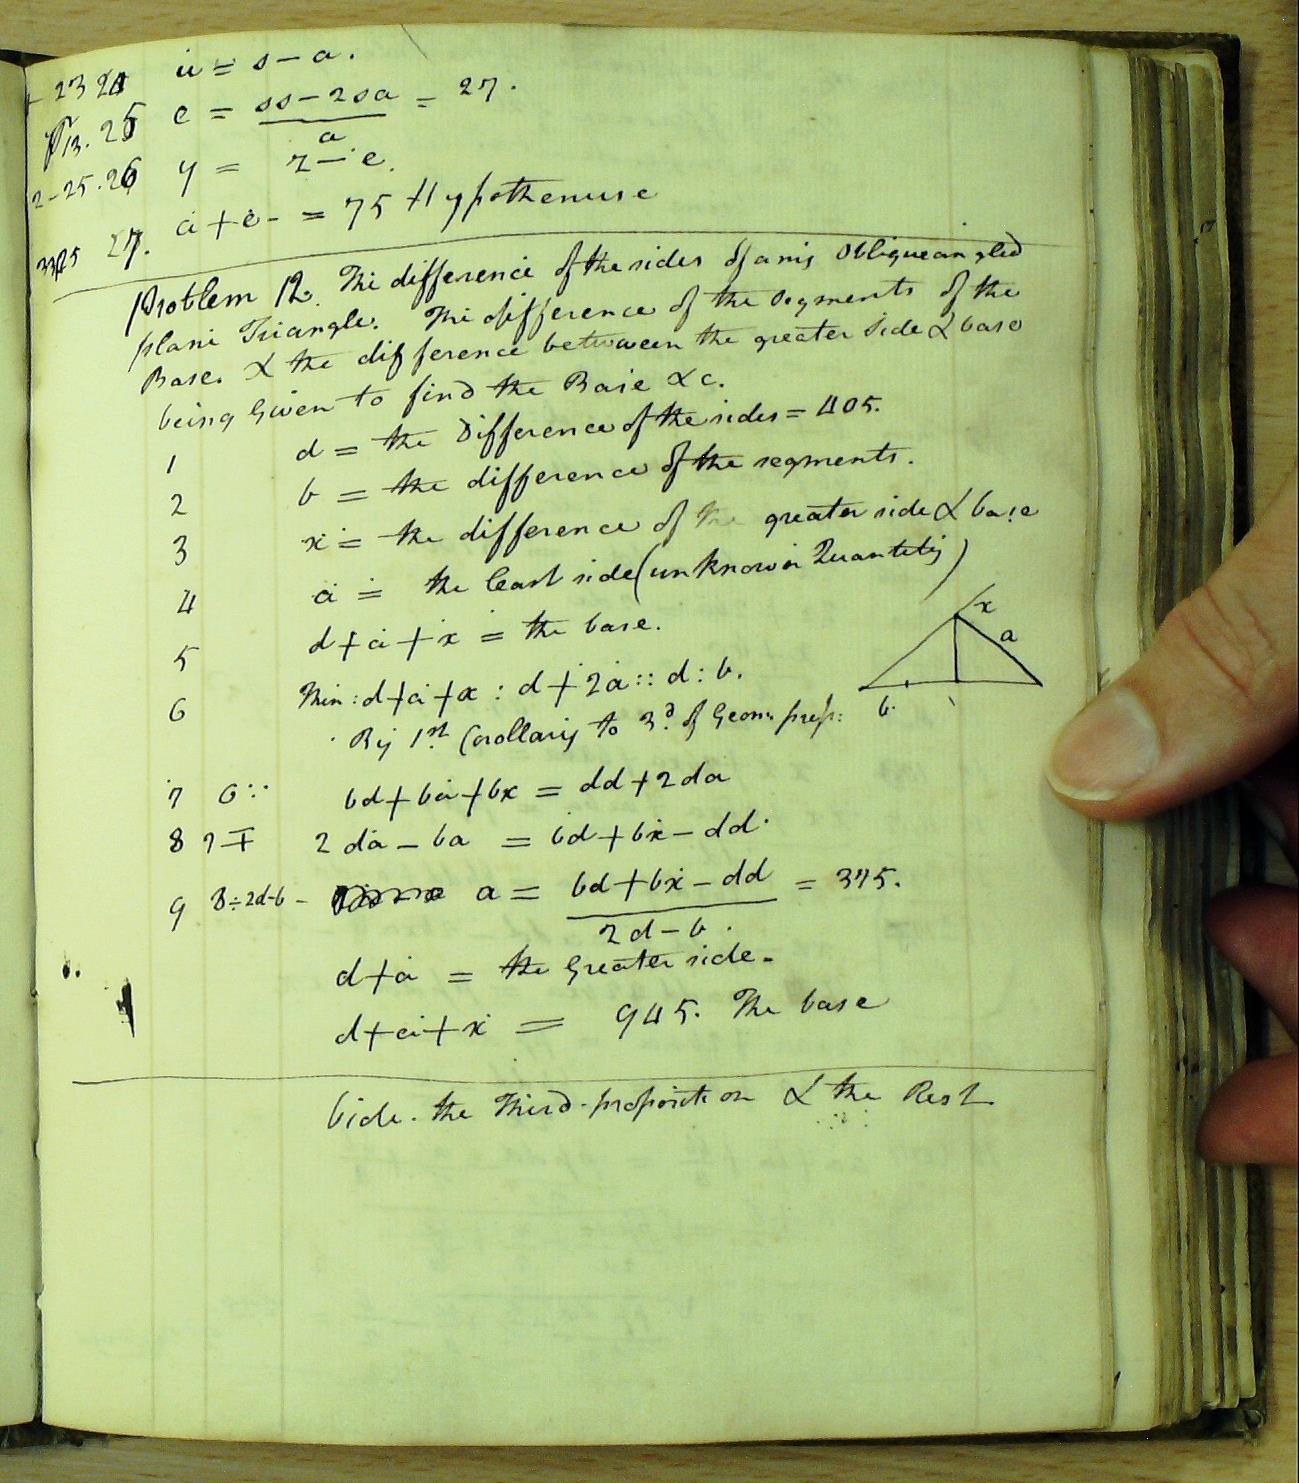 23 24 u = s - a.
13. 25 e = ss - 2sa / a = 27.
2 - 25. 26 y = z - e.
27. a + e - = 75 Hypothenuse
Problem 12. The difference of the sides of any Obliqueangled
plane Triangle. The difference of the Segments of the
Base. & the difference between the greater Side & base
being Given to find the Base &c.
1 d = the Difference of the sides = 405.
2 b = the difference of the segments.
3 x = the difference of the greater side & base
4 a = the least side (unknown Quantity)
5 d + a + x = the base.
6 Then: d + a + x : d + 2a :: d : b.
x
a
b.
By 1st Corollary to 3d. of Geom: prop:
7 6 ∵ bd + ba + bx = dd + 2da
8 7 ∓ 2da - ba = bd + bx - dd.
9 8 ÷ 2d-b - a = bd + bx - dd / 2d - b. = 375.
d + a = the Greater side.
d + a + x = 945. The base
Vide. the Third proposition & the Rest